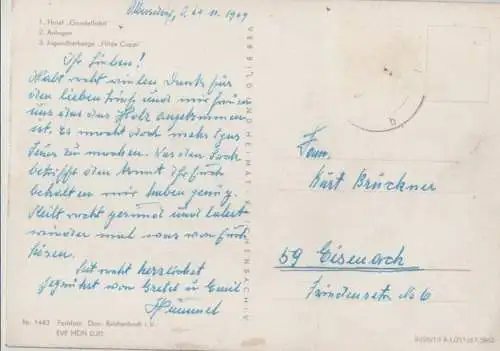 Olbersdorf, d. 21.11.1969
1. Hotel „Gondelfahrt"
2. Anlagen
3. Jugendherberge „Hilde Coppi"
Ihr Lieben!
Habt recht vielen Dank für
den lieben Brief und wir freuen
uns das das Holz angekommen
ist. Es macht doch mehr Spas
Feuer zu machen. Was den Sack
betrifft den könnt ihr Euch
behalten wir haben genug.
Bleibt recht gesund und laßt
wieder mal was von Euch
hören.
Seit recht herzlichst
gegrüsst von Gretel u Emil
Hummel
Fam.
Kurt Brückner
59 Eisenach
Lindenstr. No 6
VER BILD UND HEIMAT REICHENBACH i. V.
Nr. 1443 Farbfoto: Darr, Reichenbach i. V.
EVP MDN 0,20